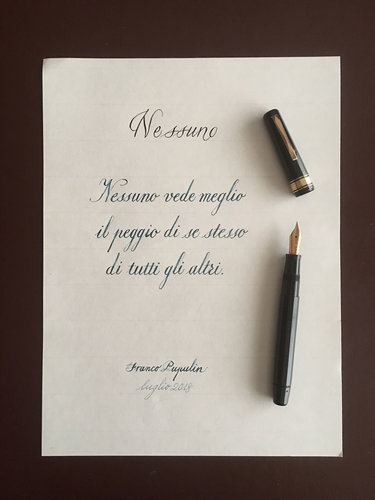 Nessuno
Nessuno vede meglio
il peggio di se stesso
di tutti gli altri.
Franco Pupulin
luglio 2018